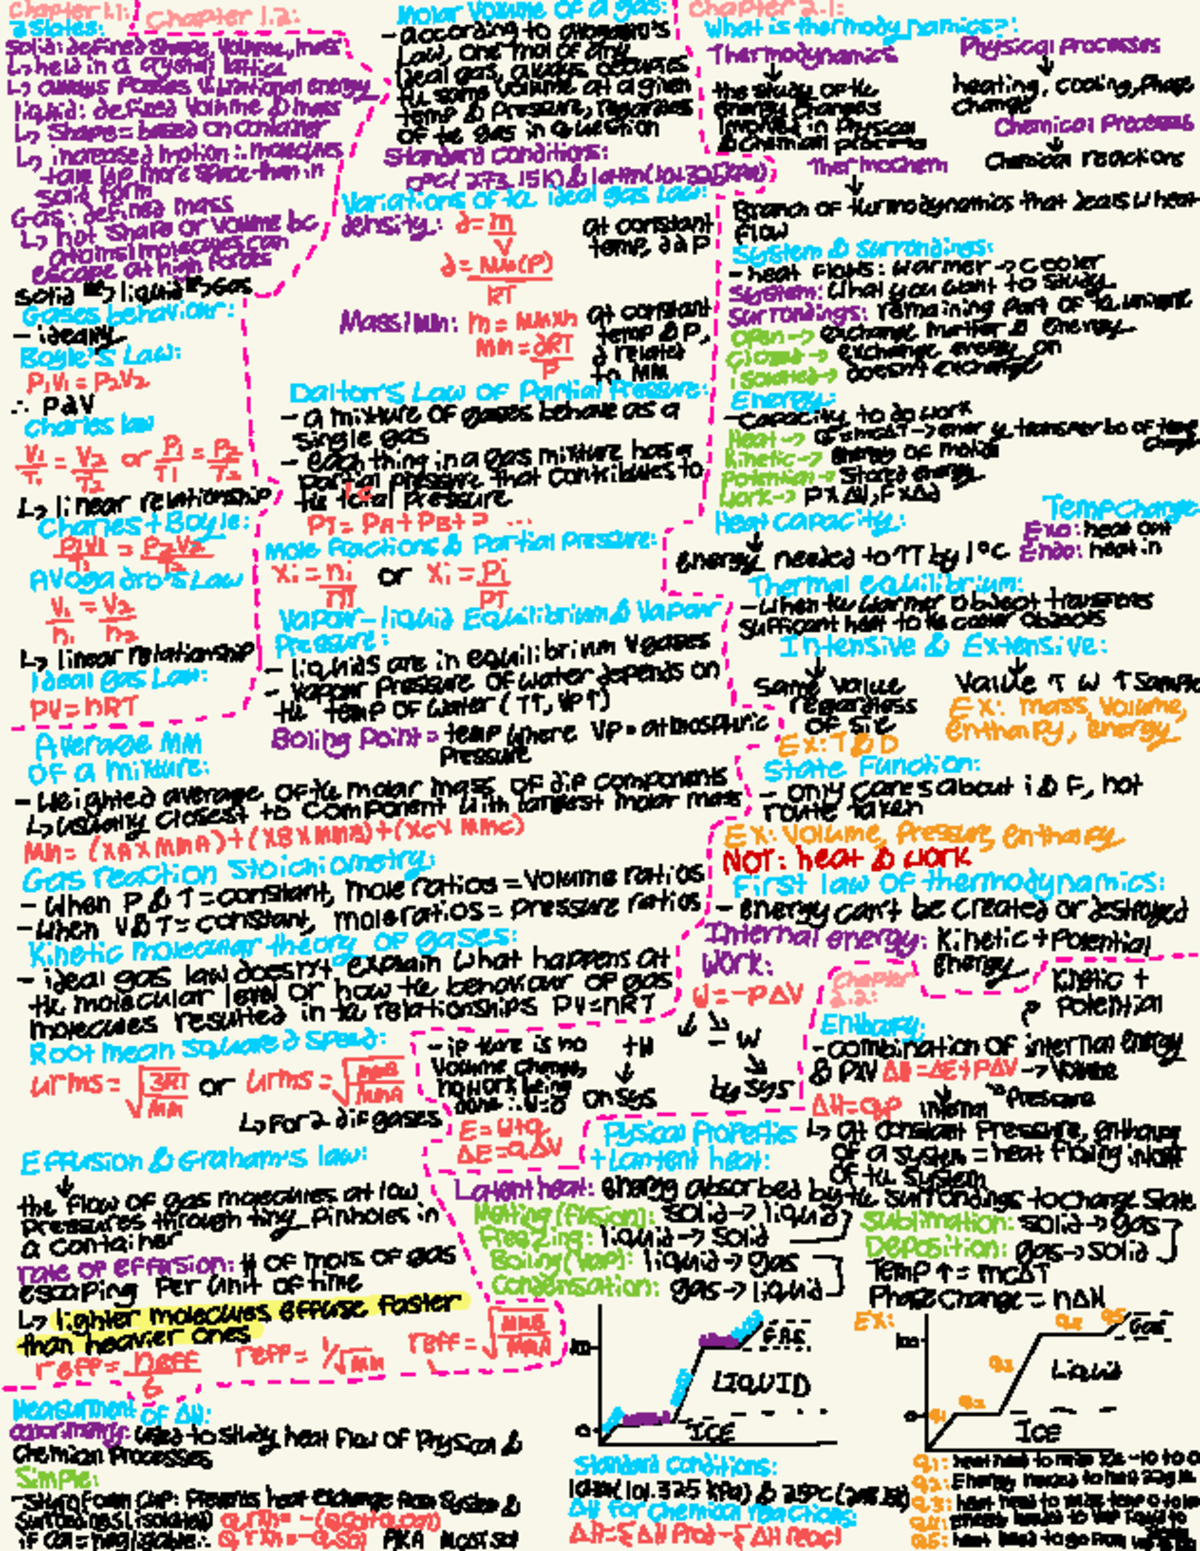 Chapter 1.1:
3 states:
Chapter 1.2:
Solid: defined shape, volume, mass
↳ held in a crystal lattice
↳ always posses vibrational energy
liquid: defined volume & mass
↳ Shape = based on container
↳ increased motion ∴ molecules
take up more space than in
solid form
Gas: defined mass
↳ not shape or volume bc
atoms/molecules can
escape at high forces
solid → liquid → Gas
Gases behaviour:
- ideally
Boyle's Law:
P1V1 = P2V2
∴ PαV
Charles law
V1/T1 = V2/T2 or P1/T1 = P2/T2
↳ linear relationship
Charles + Boyle:
P1V1/T1 = P2V2/T2
Avogadro's Law
V1/n1 = V2/n2
↳ linear relationship
Ideal gas Law:
PV = nRT
Molar Volume of a gas:
- according to avogadro's
Law, one mol of any
ideal gas, always occupies
the same volume at a given
temp & pressure, regardless
of the gas in question
Standard conditions:
0°C (273.15K) & 1atm (101.325kPa)
Variations of the ideal gas Law:
density: d = m/V
at constant
temp, dαP
d = MM(P)/RT
Mass/MM: m = MM×n
MM = dRT/P
at constant
temp & P,
d related
to MM
Dalton's Law of Partial Pressure:
- a mixture of gases behave as a
single gas
- each thing in a gas mixture has a
partial pressure that contributes to
the total pressure
PT = PA + PB + ...
Mole fractions & Partial Pressure:
xi = ni/nT or xi = Pi/PT
Vapor-liquid Equilibrium & Vapour
Pressure:
- liquids are in equilibrium w gases
- vapour pressure of water depends on
the temp of water (T↑, VP↑)
Boiling Point = temp where VP = atmospheric
pressure
Average MM
of a mixture:
- Weighted average of the molar mass of dif components
↳ usually closest to component with largest molar mass
MM = (XA × MMA) + (XB × MMB) + (XC × MMC)
Gas reaction Stoichiometry:
- When P & T = constant, mole ratios = volume ratios
- When V & T = constant, mole ratios = pressure ratios
Kinetic molecular theory of gases:
- ideal gas law doesn't explain what happens at
the molecular level or how the behaviour of gas
molecules resulted in the relationships PV=nRT
Root mean squared speed:
urms = √3RT/MM or urms = √MMB/MMA
↳ for 2 dif gases
Effusion & Graham's law:
↓
the flow of gas molecules at low
pressures through tiny pinholes in
a container
rate of effusion: # of mols of gas
escaping per unit of time
↳ lighter molecules effuse faster
than heavier ones
reff = neff/t reff = 1/√MM reff = √MMB/MMA
Chapter 2.1:
What is thermodynamics?:
Thermodynamics
↓
the study of the
energy changes
involved in physical
& chemical process
Physical Processes
↓
heating, cooling, phase
change
Chemical Processes
↓
Chemical reactions
Thermochem
↓
Branch of thermodynamics that deals w heat
flow
System & Surroundings:
- heat flows: warmer → cooler
System: What you want to study
Surroundings: remaining part of the universe
Open → exchange matter & energy
Closed → exchange energy on
isolated → doesn't exchange
Energy:
- Capacity to do work
Heat → energy transfer bc of temp
change
Kinetic → energy of motion
Potential → stored energy
Work → P×ΔV, F×Δd
Heat capacity:
↓
energy needed to ↑T by 1°C
Temp change
Exo: heat out
Endo: heat in
Thermal equilibrium:
- When the warmer object transfers
sufficent heat to the cooler objects
Intensive & Extensive:
Same value
regardless
of size
EX: T & D
Value ↑ w ↑ sample
EX: mass, volume,
enthalpy, energy
State Function:
- only cares about i & F, not
route taken
EX: Volume, Pressure, enthalpy
NOT: heat & work
First law of thermodynamics:
- energy can't be created or destroyed
Internal energy: Kinetic + Potential
energy
Work:
W = -PΔV
- if there is no
volume change,
no work being
done ∴ W=0
+W
↓
on sys
-W
↓
by sys
E = w+q
ΔE = q,ΔV
Chapter
2.2:
Kinetic +
Potential
Enthalpy:
- combination of internal energy
& PxV ΔH = ΔE + PΔV → Volume
Internal Pressure
ΔH = qp
↳ at constant pressure, enthalpy
of a system = heat flowing in/out
of the system
Pysical Properties
+ Lantent heat:
Latent heat: energy absorbed by the surroundings to change state
Melting (fusion): solid → liquid
Freezing: liquid → solid
Boiling (vap): liquid → gas
Condensation: gas → liquid
Sublimation: solid → gas
Deposition: gas → solid
Temp ↑ = mcΔT
Phase Change = nΔH
100
GAS
LIQUID
0
ICE
EX:
100
q4 q5
Gas
q3
Liquid
q1 q2
0
ICE
Measurment
of ΔH:
calorimetry: used to study heat flow of physical &
chemical processes
Simple:
- Styrofoam cup: prevents heat exchange from system &
surroundings (isolated)
Standard conditions:
1atm (101.325 kPa) & 25°C
ΔH for chemical reactions:
ΔH = ΣΔH Prod - ΣΔH react
q1:
q2:
q3:
q4:
q5: